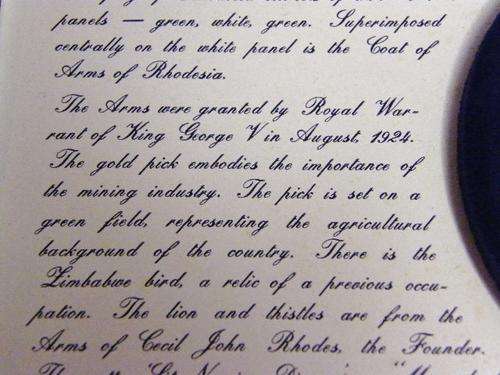 panels — green, white, green. Superimposed
centrally on the white panel is the Coat of
Arms of Rhodesia.
The Arms were granted by Royal War-
rant of King George V in August, 1924.
The gold pick embodies the importance of
the mining industry. The pick is set on a
green field, representing the agricultural
background of the country. There is the
Zimbabwe bird, a relic of a previous occu-
pation. The lion and thistles are from the
Arms of Cecil John Rhodes, the Founder.